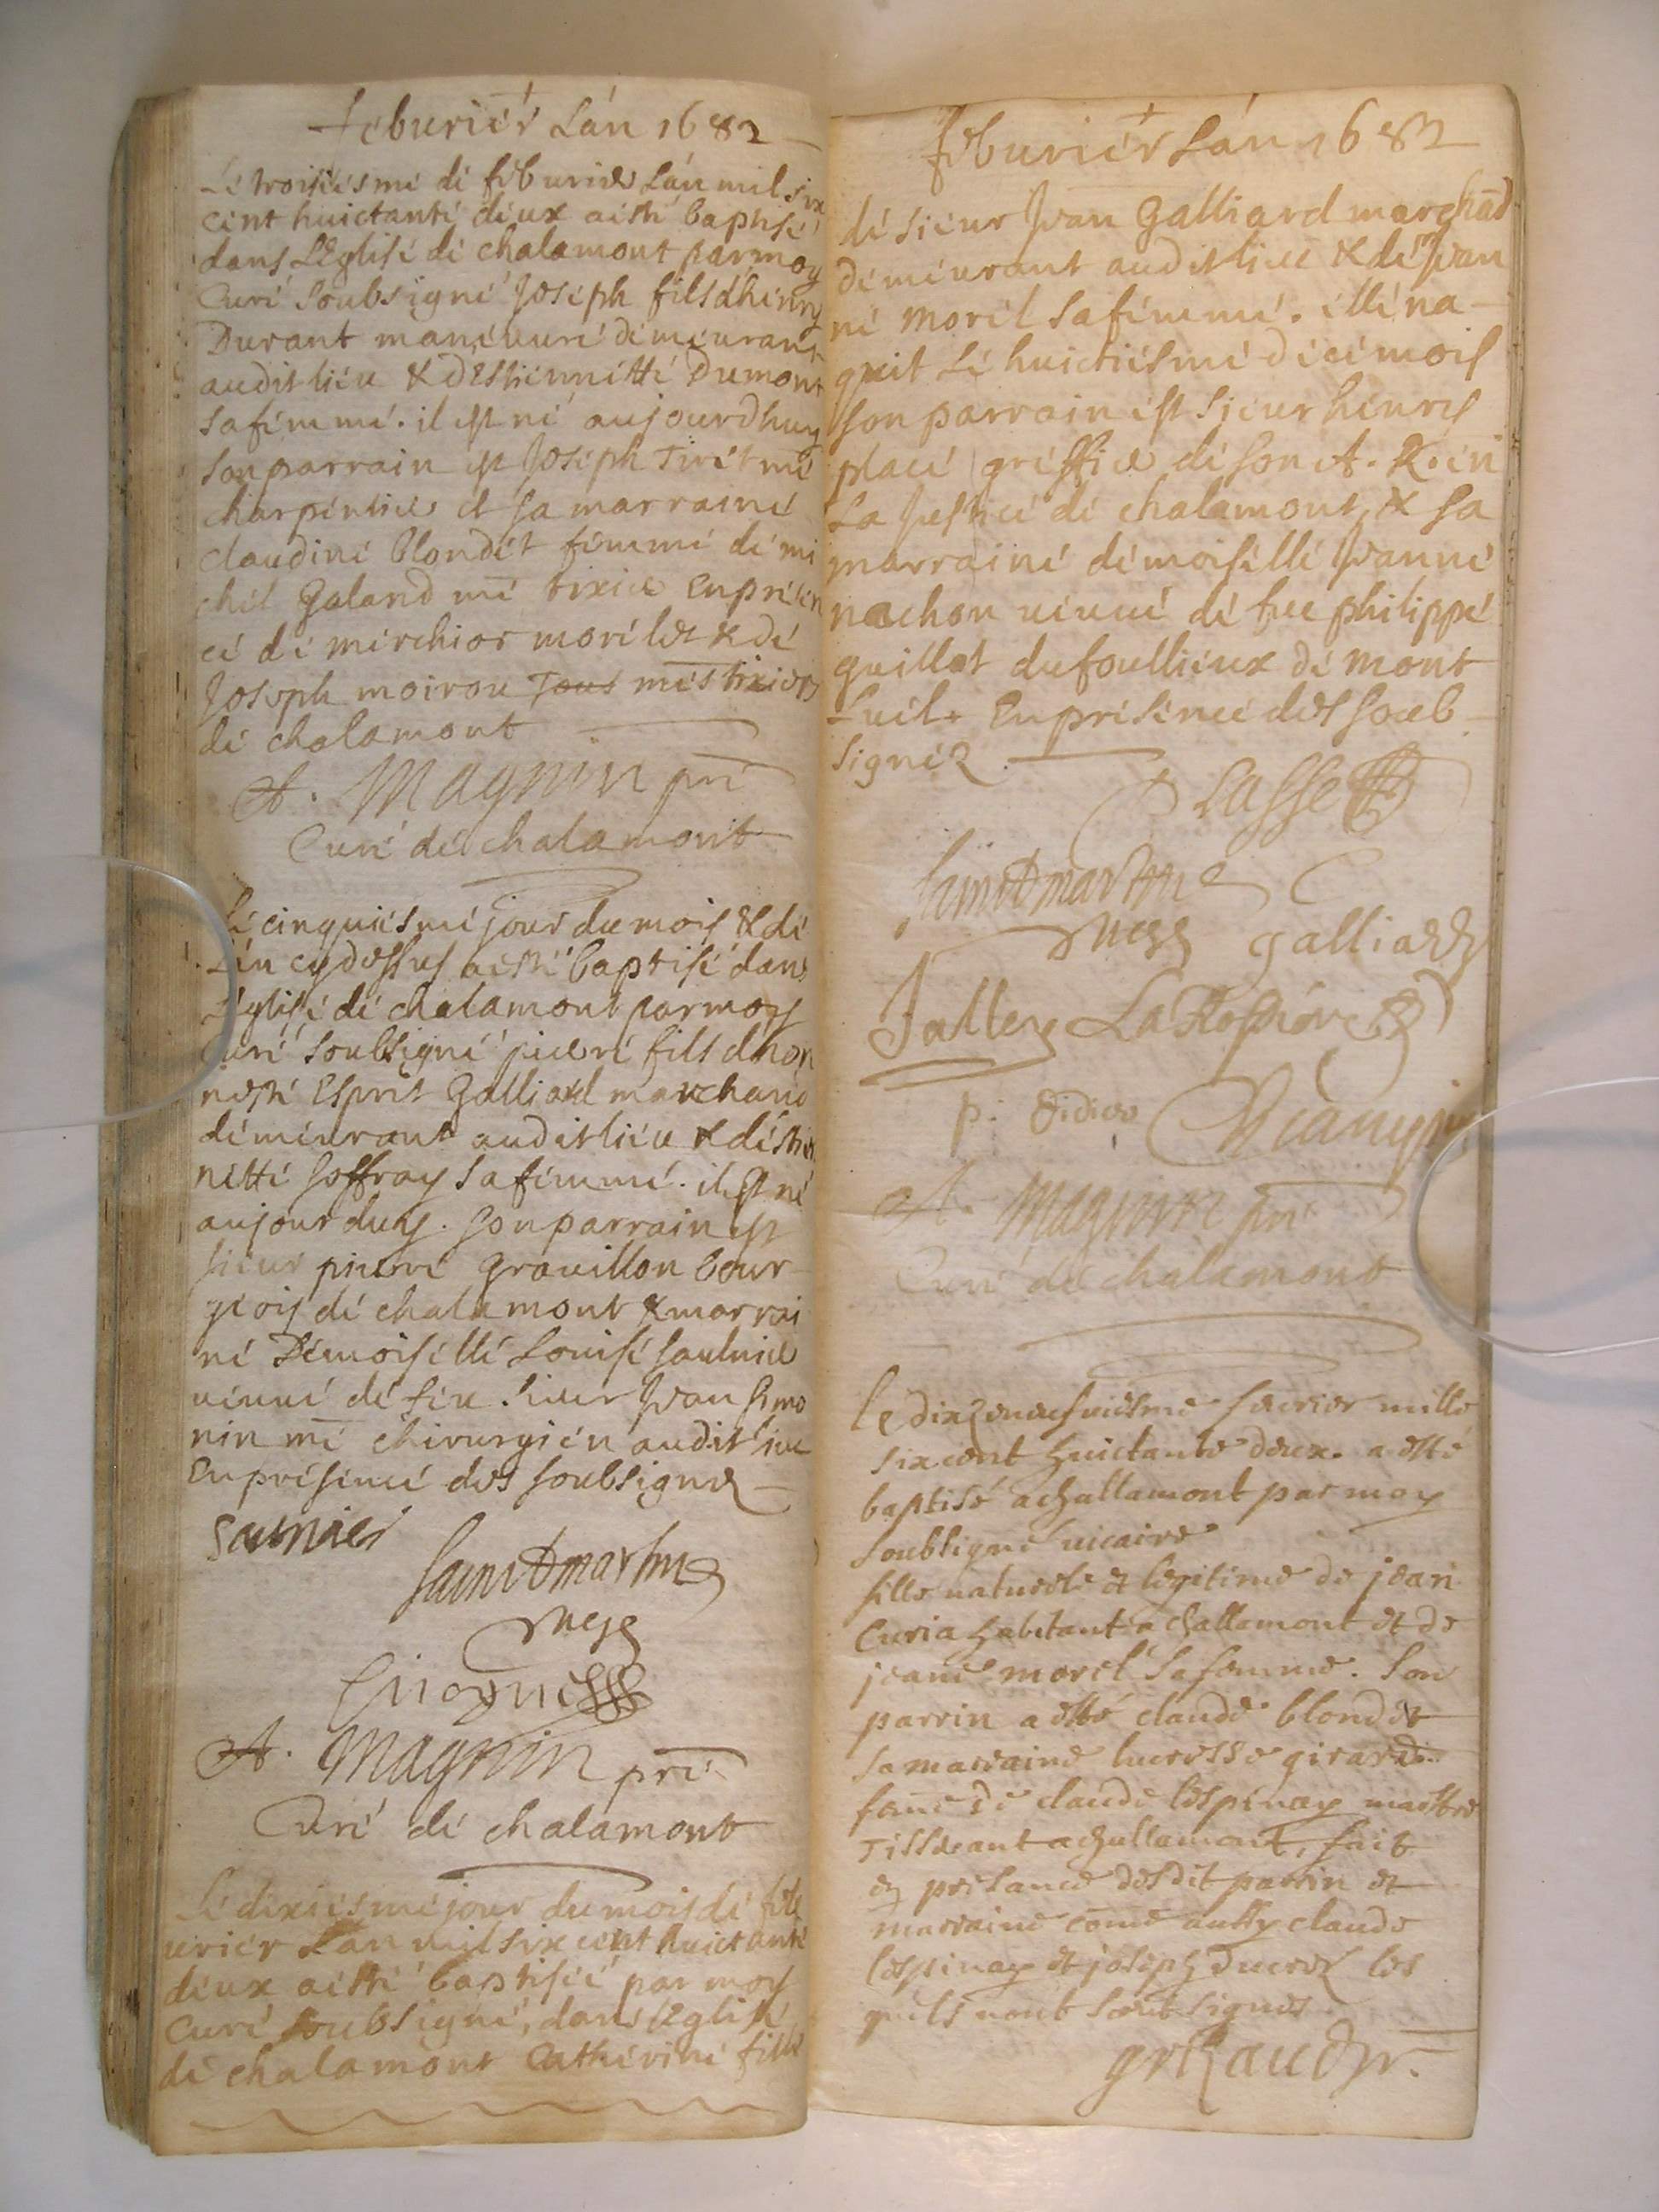 Feburier Lán 1682
Le troisiesme de feburier Lán mil six
cent huictante deux aesté baptisé
dans LEglise de chalamont par moy
Curé soubsigné Joseph fils dhenry
Durant maneuure demeurant
audit lieu & dEstiennette Dumont
sa femme. il est né aujourdhuy
son parrain est Joseph Tiret me
charpentier et sa marraine
claudine blondet femme de mi
chel Galand me tixier En presen
ce de merchior morel et & de
Joseph moirou Tous mes tixiers
de chalamont
A. Magnin pre
Curé de chalamont
Le cinquiesme jour du mois & de
Lán cydessus aesté baptisé dans
LEglise de chalamont par moy
Curé soubsigné pierre fils dhon
neste Esprit Galliard marchand
demeurant audit lieu & destien
nette Joffray sa femme. il est né
aujourduy. son parrain est
sieur pierre Grauillon bour
geois de chalamont & marrai
ne Demoiselle Louise saulnier
veuue de feu sieur Jean simo
nin me chirurgien audit lieu
En presence des soubsignez
saunier
sainctmartin
A. Magnin pre
Curé de chalamont
Le dixiesme jour du mois de feb
urier Lán mil six cent huictante
deux aesté baptisée par moy
Curé soubsigné, dans LEglise
de chalamont Catherine fille
Feburier Lán 1682
de sieur Jean Galliard marchãd
demeurant audit lieu & de Jean
ne morel sa femme. elle na
quit Le huictiesme de ce mois
son parrain est sieur henry
place greffier de son A. R. en
La Justice de chalamont & sa
marraine demoiselle Jeanne
nachon veuue de feu philippe
guillot dufoullieux de mont
luel. En presence des soub
signéz
sainctmartin
galliard
p. didier
A. Magnin pre
Curé de chalamont
le dixzeneufuiesme feurier mille
six cent huictante deux. a esté
baptisé a challamont par moy
soubsigné uicaire
fille naturele et legitime de jean
Curia habitant a challamont et de
jeane morel sa femme. Son
parrin a esté claude blondet
sa marraine lucresse girard
fame de claude lespinay maittre
Tisserant a challamont, fait
en presance desdit parrin et
marraine come aussy claude
lespinay et joseph ducrez les
quels nont sceut signer